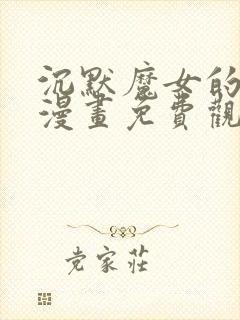 沉默魔女的
漫畫免費觀
党家莊